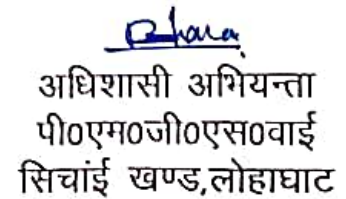 अधिशासी अभियन्ता
पी0एम0जी0एस0वाई
सिचांई खण्ड,लोहाघाट